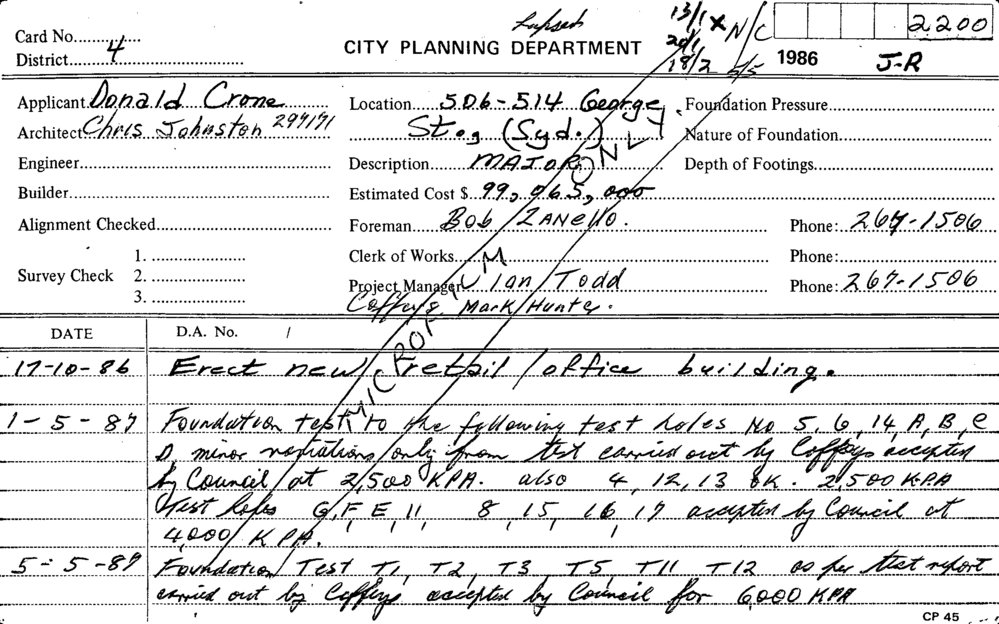 Lapsed
13/1 X N/C
20/1
18/2 5/5
2200
Card No.
District 4
CITY PLANNING DEPARTMENT
1986 J-R
Applicant Donald Crone
Location 506-514 George
Foundation Pressure
Architect Chris Johnston 297171
St., (Syd.)
Nature of Foundation
Engineer
Description MAJOR
Depth of Footings
Builder
Estimated Cost $ 99,965,000
Alignment Checked
Foreman Bob ZANELLO.
Phone: 267-1506
Clerk of Works
Phone:
Survey Check 1.
2.
3.
Project Manager Ian Todd
Phone: 267-1506
Coffeys Mark Hunter.
MICROFILM ONLY
DATE D.A. No. /
17-10-86 Erect new retail/office building.
1-5-87 Foundation test to the following test holes No 5, 6, 14, A, B, C
D, minor variations only from test carried out by Coffeys accepted
by Council at 2,500 KPA. also 4, 12, 13 OK. 2,500 KPA
Test holes G, F, E, 11, 8, 15, 16, 17 accepted by Council at
4,000 KPA.
5-5-87 Foundation Test T1, T2, T3, T5, T11 T12 as per test report
carried out by Coffeys accepted by Council for 6,000 KPA
CP 45